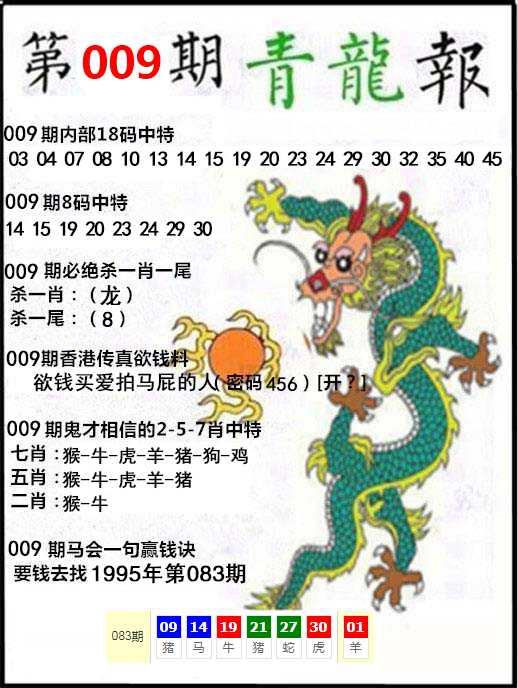 第009期青龍報
009期内部18码中特
03 04 07 08 10 13 14 15 19 20 23 24 29 30 32 35 40 45
009期8码中特
14 15 19 20 23 24 29 30
009 期必绝杀一肖一尾
杀一肖：（龙）
杀一尾：（8）
009期香港传真欲钱料
欲钱买爱拍马屁的人（密码456）[开？]
009期鬼才相信的2-5-7肖中特
七肖：猴-牛-虎-羊-猪-狗-鸡
五肖：猴-牛-虎-羊-猪
二肖：猴-牛
009 期马会一句赢钱诀
要钱去找1995年第083期
083期 09 14 19 21 27 30 01
猪 马 牛 猪 蛇 虎 羊